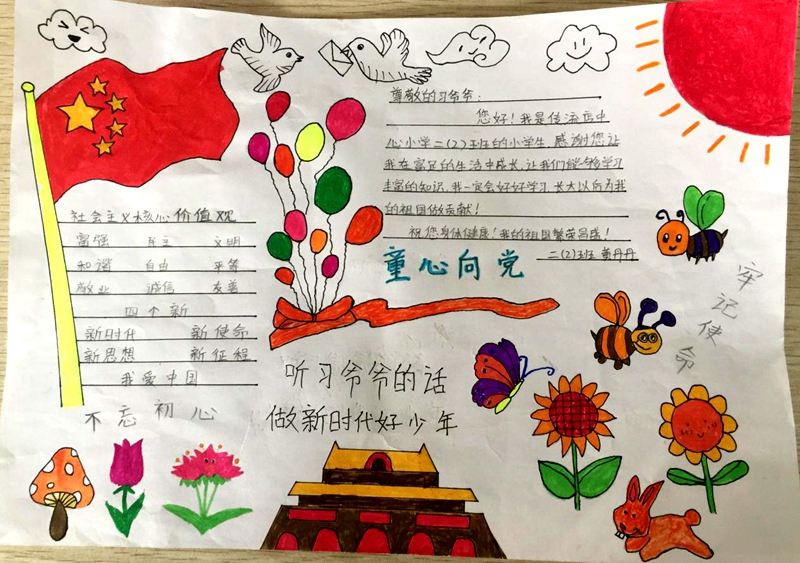 社会主义核心价值观
富强 民主 文明
和谐 自由 平等
敬业 诚信 友善
四个新
新时代 新使命
新思想 新征程
我爱中国
不忘初心
尊敬的习爷爷:
您好!我是传流店中
心小学二(2)班的小学生,感谢您让
我在富足的生活中成长,让我们能够学习
丰富的知识,我一定会好好学习,长大以后为我
的祖国做贡献!
祝您身体健康!我的祖国繁荣昌盛!
二(2)班 黄丹丹
童心向党
听习爷爷的话
做新时代好少年
牢记使命